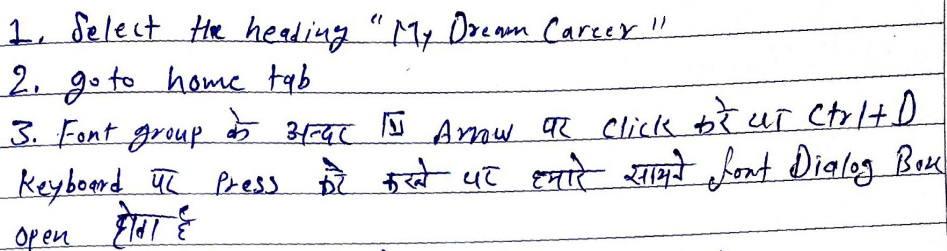 1. Select the heading "My Dream Career"
2. go to home tab
3. Font group के अन्दर Arrow पर click करें या Ctrl+D
Keyboard पर Press करें करने पर हमारे सामने font Dialog Box
open होता है